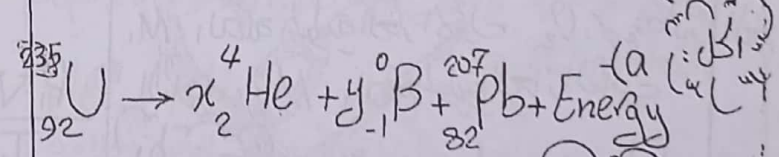 ²³⁵₉₂U → x ⁴₂He + y ⁰₋₁B + ²⁰⁷₈₂Pb + Energy